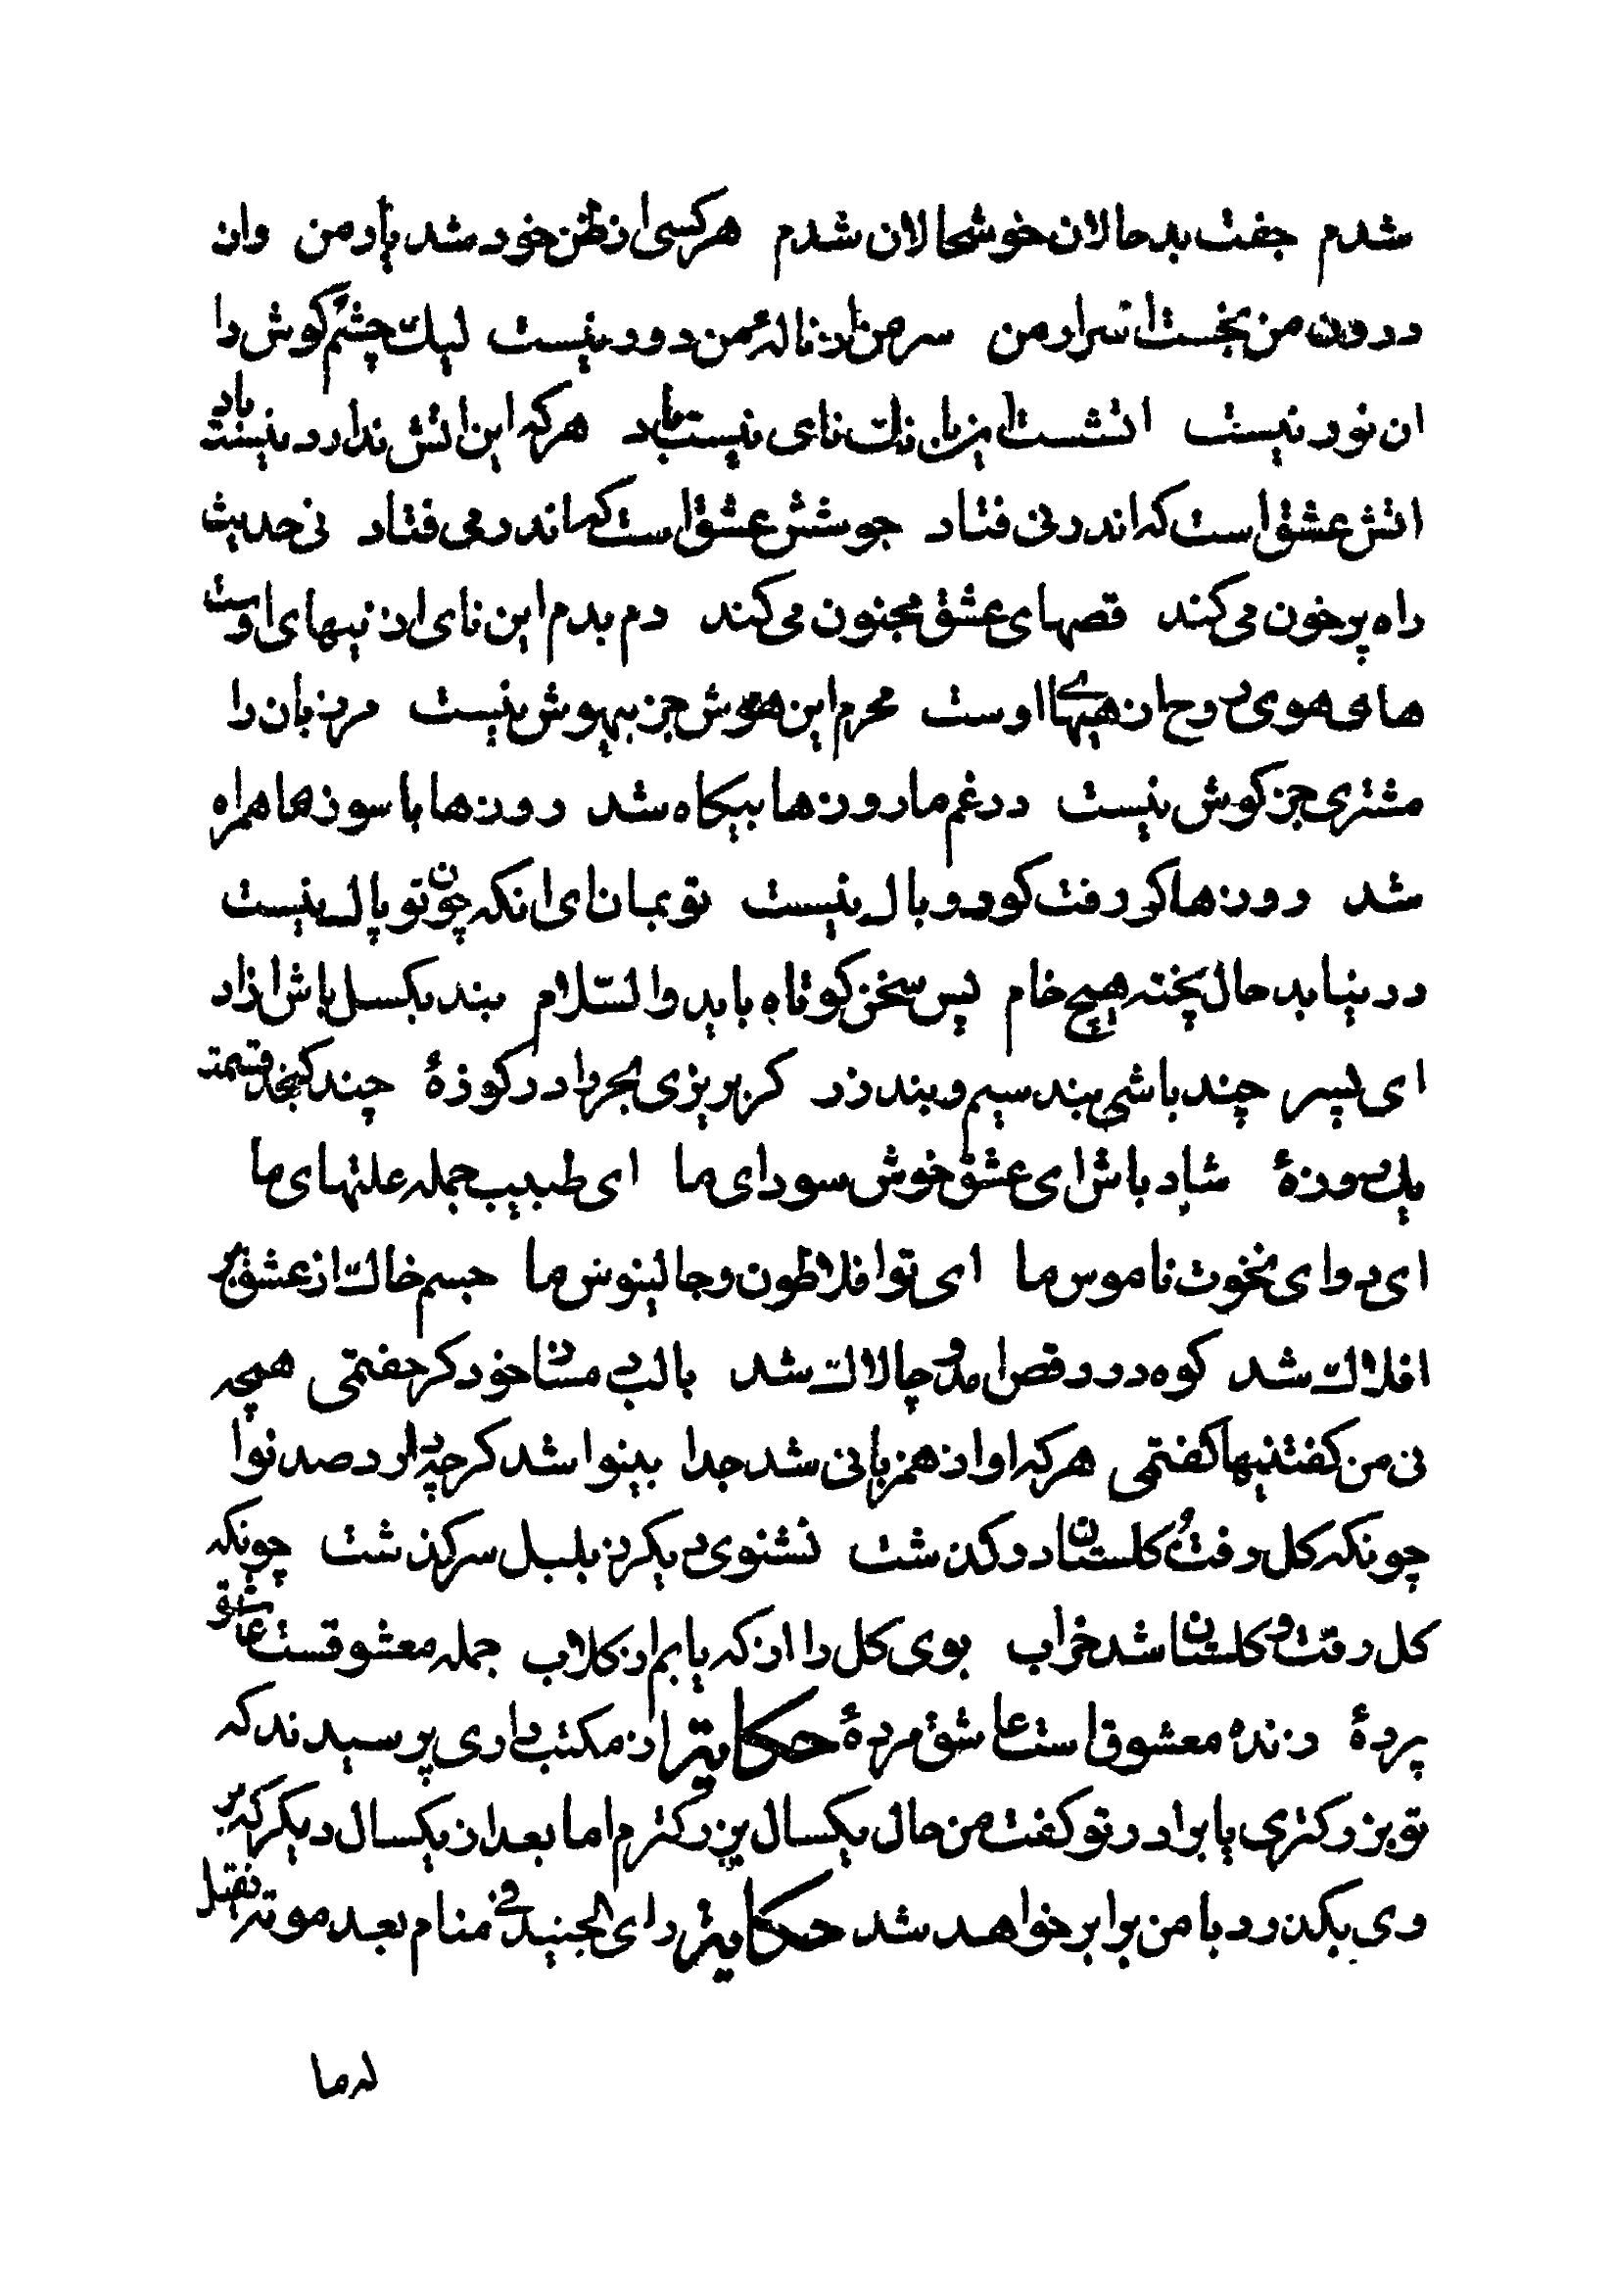 شدم جفت بدحالان خوشحالان شدم هر کسی از ظن خود شد یار من وان
درون من بجست اسرار من سر من از نالهٔ من دور نیست لیک چشم گوش را
ان نور نیست اتشست این بانک نای نیست باد هر که این اتش ندارد نیست باد
اتش عشق است که اندر نی فتاد جوشش عشق است کماندر می فتاد نی حدیث
راه پر خون می کند قصهای عشق مجنون می کند دم بدم این نای از نیهای اوست
های هوی روح از هیهای اوست محرم این هوش جز بیهوش نیست مر زبان را
مشتری جز کوش نیست در غم ما روزها بیکاه شد روزها با سوزها همراه
شد روزها کر رفت کو رو بال نیست تو بمان ای انکه چون تو پال نیست
در نیابد حال پخته هیچ خام پس سخن کوتاه باید والسلام بند بکسل باش ازاد
ای پسر چند باشی بند سیم و بند زر کر بریزی بحر را در کوزهٔ چند کنجد قسمت
یک روزهٔ شاد باش ای عشق خوش سودای ما ای طبیب جمله علتهای ما
ای دوای نخوت ناموس ما ای تو افلاطون و جالینوس ما جسم خاک از عشق بر
افلاک شد کوه در رقص امد و چالاک شد با لب دمساز خود کر جفتمی همچه
نی من کفتنیها کفتمی هر که او از همزبانی شد جدا بینوا شد کر چه دارد صد نوا
چونکه کل رفت و کلستان درکذشت نشنوی دیکر ز بلبل سرکذشت چونکه
کل رفت و کلستان شد خراب بوی کل را از که یابم از کلاب جمله معشوقست عاشق
پردهٔ زنده معشوق است عاشق مردهٔ حکایتر از مکتب داری پرسیدند که
تو بزرکتری یا برادر تو کفت من حال یکسال بزرکترم اما بعد از یکسال دیکر که بر
وی بکذرد با من برابر خواهد شد حکایتر رای الجنید فی منام بعد موته فقیل
له ما